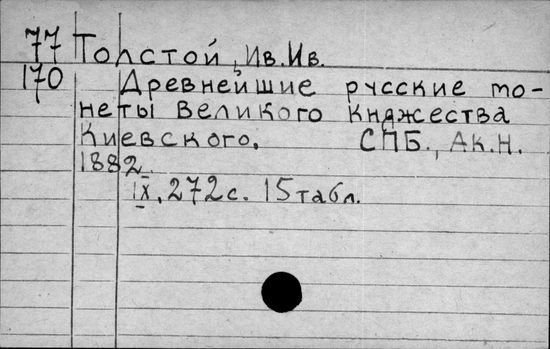 77 Толстой, Ив. Ив.
170 Древнейшие русские мо-
неты Великого Княжества
Киевского. СПБ., Ак. Н.
1882.
IX, 272 с. 15 табл.